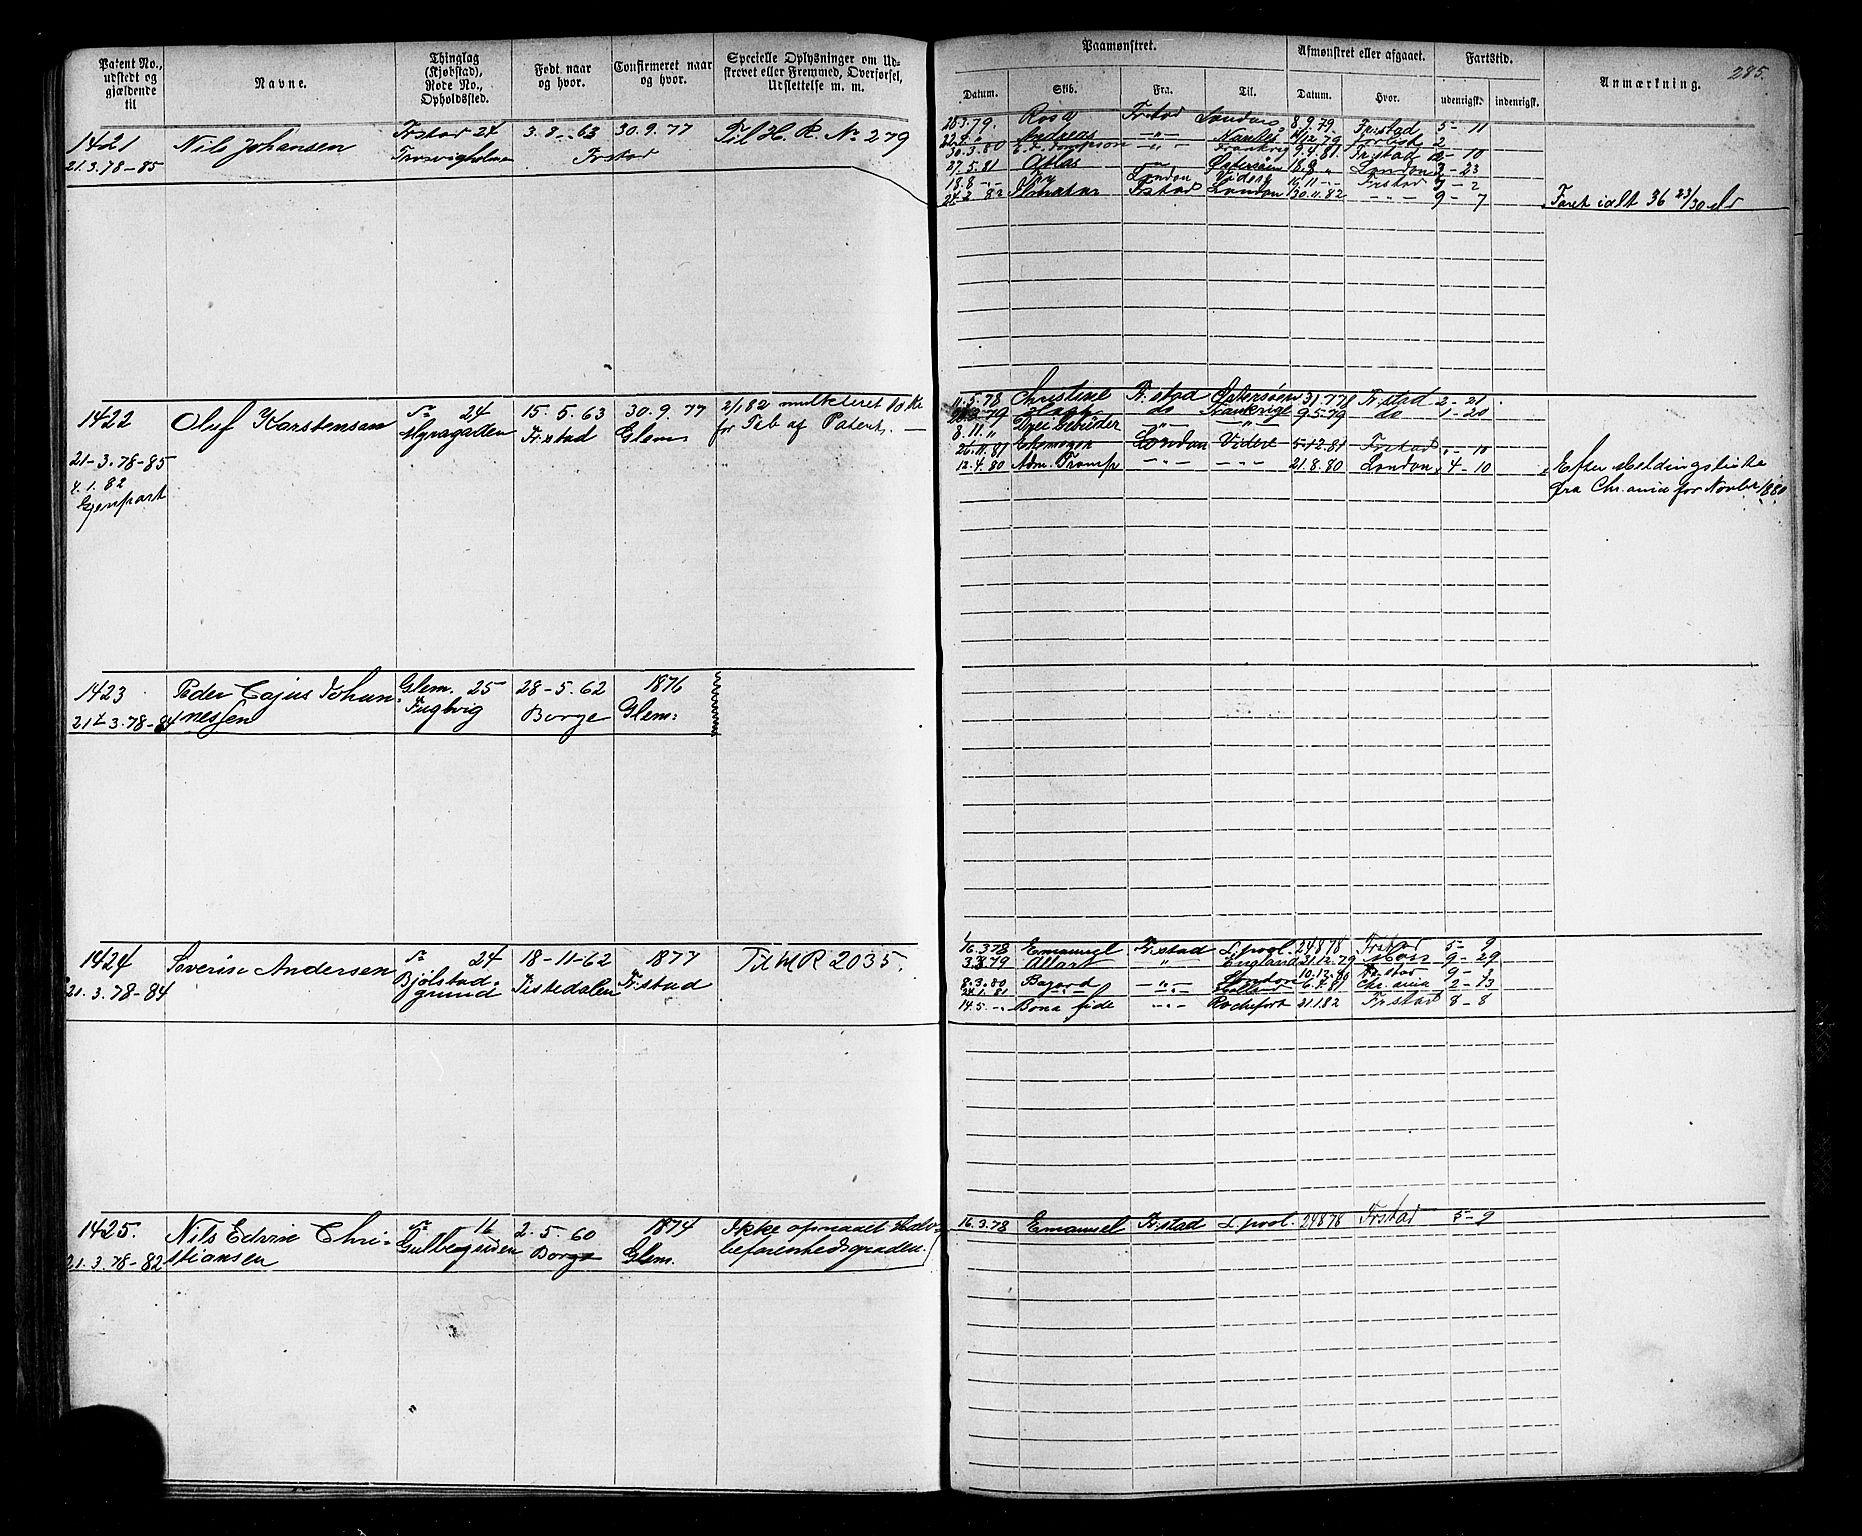 Patent No., udstedt og gjældende til
Navne.
Thinglag (Kjøbstad), Rode No., Opholdssted.
Født naar og hvor.
Confirmeret naar og hvor.
Specielle Oplysninger om Udskrevet eller Fremmed, Overførsel, Udslettelse m. m.
Paamønstret.
Afmønstret eller afgaaet.
Fartstid.
Anmærkning.
285.
Datum.
Skib.
Fra.
Til.
Datum.
Hvor.
udenrigsk.
indenrigsk.
1421
21.3.78-85
Nils Johansen
Frstad 24
Trosvigholmen
3.8.-63
Frstad
30.9.77
Til H. R. No 279
28.3.79. Rosa Frstad 8.9.79. Fr.stad 5-11
Andreas Nantes 12.79
30.3.80 Frankrig 9.4.81 Fr.stad 12-10
27.5.81 Atlas Østersøen 18.8 London 2-23
18.8 London Videre Frstad 2
82 Frstad London 30.11.82 9-7
Faret ialt 36 23/30 Md
1422
21-3.78-85
4.1.82
Gjenpart
Oluf Karstensen
24
Myragatten
15.5.63
Fr.stad
30.9.77
Glem
2/1 82 mulkteret 10 Kr
for Tab af Patent.
11.5.78 Christine Fr.stad Østersøen 31.778 Fr.stad 2-21.
79 do Frankrige 9.5.79 do 1-20
8.11. Drei Gebrüder
26.11.81 London Videre 5-12.81 Frstad -10
12.4.80 Adm. Tromp 21.8.80 London 4-10
Efter Meldingsliste
fra Chr.ania for Novbr 1880
1423
21-3.78-84
Peder Cajus Johan-
nessen
Glem. 25
Fuglvig
28-5.62
Borge
1876
Glem:
1424
21.3.78-84
Severin Andersen
24
Bjølstad-
grund
18-11-62
Tistedalen
1877
Fr.stad
Til M R 2035.
16.3.78 Emanuel Fr.stad L.pool. 24878 Frstad 5-9
3.3.79 England 31.12.79 9-29
8.3.80 London 10.12.80 Fr.stad 9-3
24.1.81 Chr.ania 2-13
14.5.- Bona fide Rochefort 21.1.82 Frstad 8-8
1425.
21.3.78-82
Nils Edvin Chri-
stiansen
16
Gulbergsiden
2-5.60
Borge
1874
Glem.
Ikke opnaaet Halv-
befarenhedsgraden.
16.3.78 Emanuel Fr.stad L.pool. 24878 Frstad 5-9